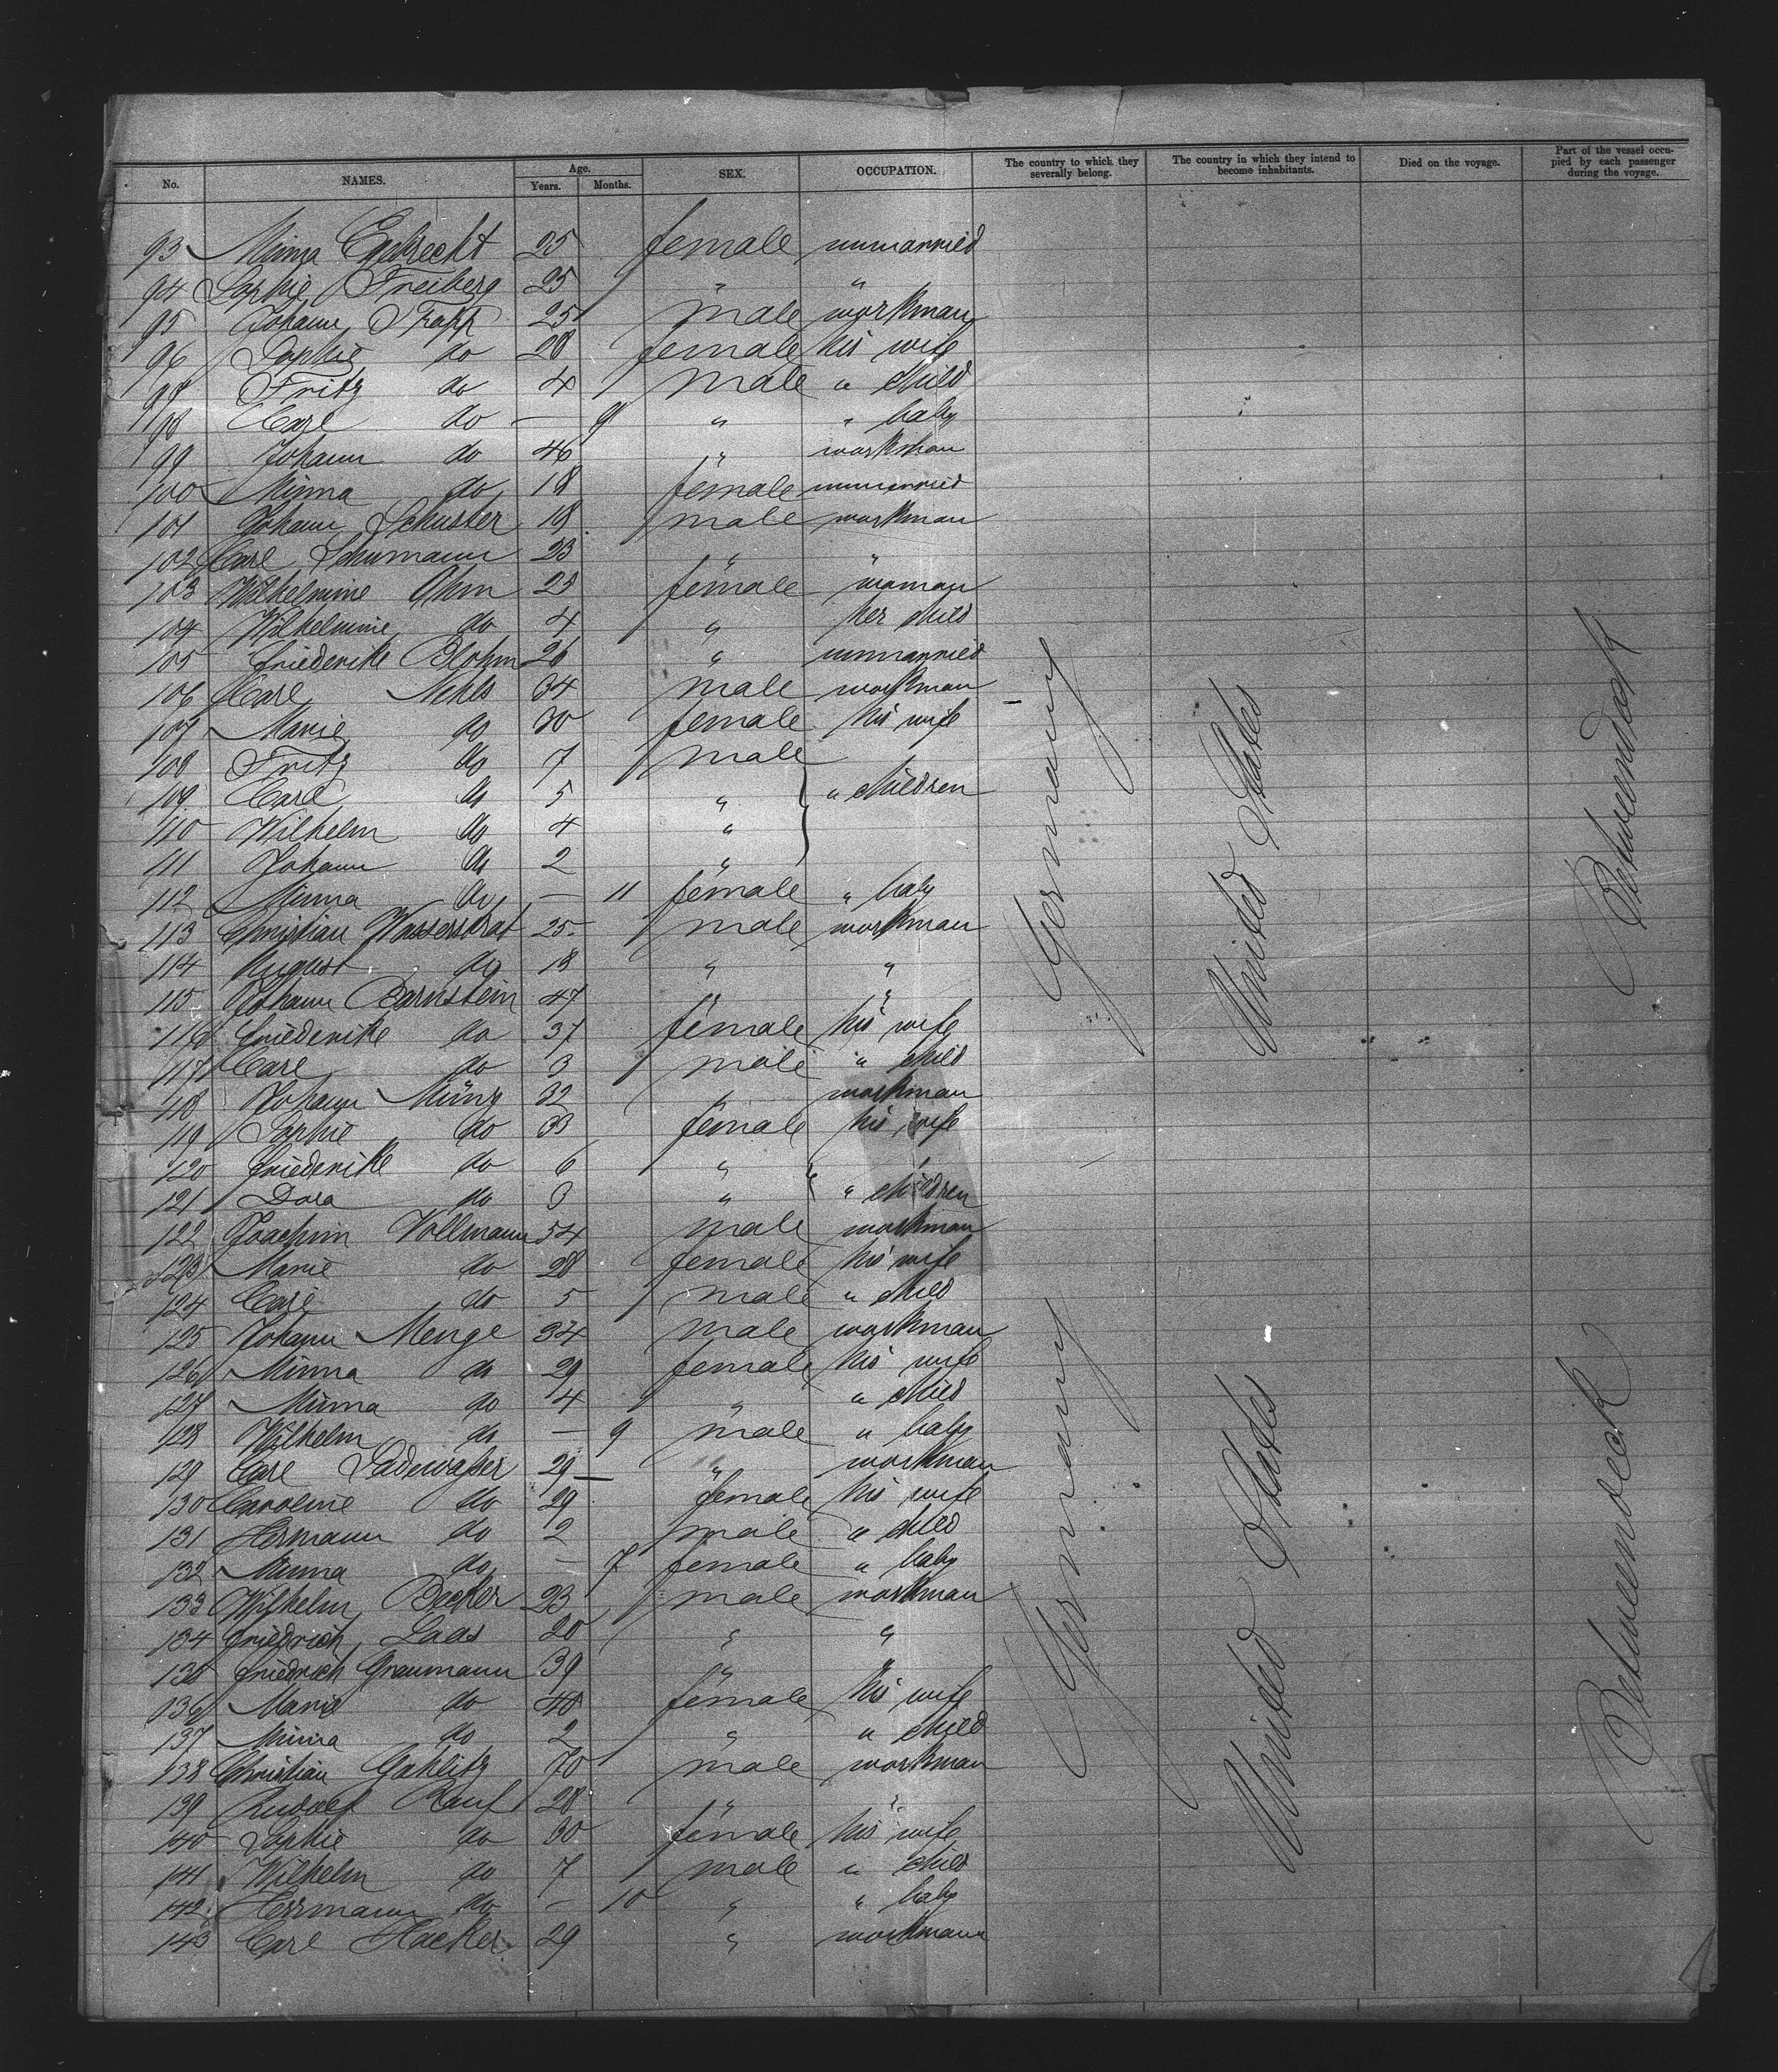 No. NAMES. Age. Years. Months. SEX. OCCUPATION. The country to which they severally belong. The country in which they intend to become inhabitants. Died on the voyage. Part of the vessel occupied by each passenger during the voyage.
93 Minna 25 female unmarried
94 Sophie Freiberg 25 " "
95 Johann Trapp 25 male workman
96 Sophie do 28 female his wife
97 Fritz do 4 male " child
98 Carl do — 9 " " baby
99 Johann do 46 " workman
100 Minna do 18 female unmarried
101 Johann Schuster 18 male workman
102 Carl Schumann 23 " "
103 Wilhelmine Ahm 23 female woman
104 Wilhelmine do 4 " her child
105 Friederike Blohm 26 " unmarried
106 Carl Nehls 34 male workman
107 Marie do 30 female his wife
108 Fritz do 7 male
109 Carl do 5 " " children
110 Wilhelm do 4 "
111 Johann do 2 "
112 Minna do — 11 female " baby
113 Christian Wasserstrat 25 male workman
114 August do 18 " "
115 Johann Barnstein 47 " "
116 Friederike do 37 female his wife
117 Carl do 3 male " child
118 Johann Münz 32 " workman
119 Sophie do 33 female his wife
120 Friederike do 6 " "
121 Dora do 3 " " children
122 Joachim Vollmann 54 male workman
123 Marie do 28 female his wife
124 Carl do 5 male " child
125 Johann Menge 34 male workman
126 Minna do 29 female his wife
127 Minna do 4 " " child
128 Wilhelm do — 9 male " baby
129 Carl Ladewaßer 29 " workman
130 Caroline do 29 female his wife
131 Hermann do 2 male " child
132 Minna do — 7 female " baby
133 Wilhelm Becker 23 male workman
134 Friedrich Laas 20 " "
135 Friedrich Graumann 39 " "
136 Marie do 40 female his wife
137 Minna do 2 " " child
138 Christian Gahlitz 70 male workman
139 Rudolf Rauf 28 " "
140 Sophie do 30 female his wife
141 Wilhelm do 7 male " child
142 Herrmann do — 10 " " baby
143 Carl Hacker 29 " workmann
Germany
United States
Betweendeck
Germany
United States
Betweendeck